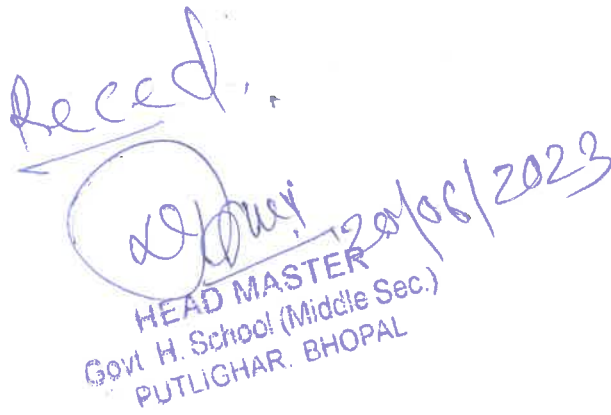 Receed.
20/06/2023
HEAD MASTER
Govt H. School (Middle Sec.)
PUTLIGHAR. BHOPAL